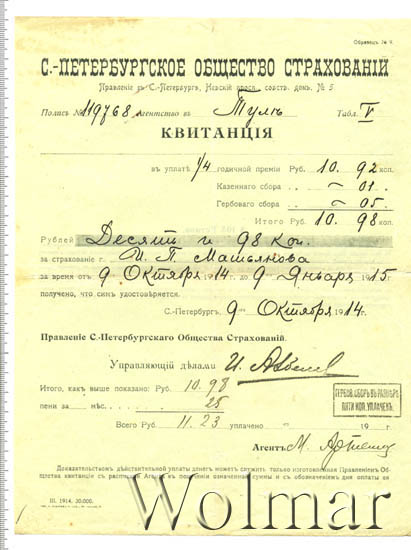 Образецъ № 9.
С.-ПЕТЕРБУРГСКОЕ ОБЩЕСТВО СТРАХОВАНІЙ
Правленіе въ С.-Петербургѣ, Невскій просп. собств. дом. № 5.
Полисъ № 119768 Агентство въ Тулѣ Табл. V
КВИТАНЦІЯ
въ уплатѣ 1/4 годичной преміи Руб. 10. 92 коп.
Казеннаго сбора . . ~ 01 . .
Гербоваго сбора . . ~ 05 . .
Итого Руб. 10. 98 коп.
Рублей Десять и 98 коп.
за страхованіе г. И. П. Машьянова
за время отъ 9 Октября 1914 до 9 Января 1915
получено, что симъ удостовѣряется.
С.-Петербургъ, 9 Октября 1914 г.
Правленіе С.-Петербургскаго Общества Страхованій.
Управляющій дѣлами
Итого, какъ выше показано: Руб. 10.98
пени за мѣс. 25
ГЕРБОВ. СБОРЪ ВЪ РАЗМѢРѢ
ПЯТИ КОП. УПЛАЧЕНЪ.
Всего Руб. 11.23 уплачено 19 г.
Агентъ
Доказательствомъ дѣйствительной уплаты денегъ можетъ служить только изготовленная Правленіемъ Об-
щества квитанція съ
III. 1914. 30.000.
Wolmar